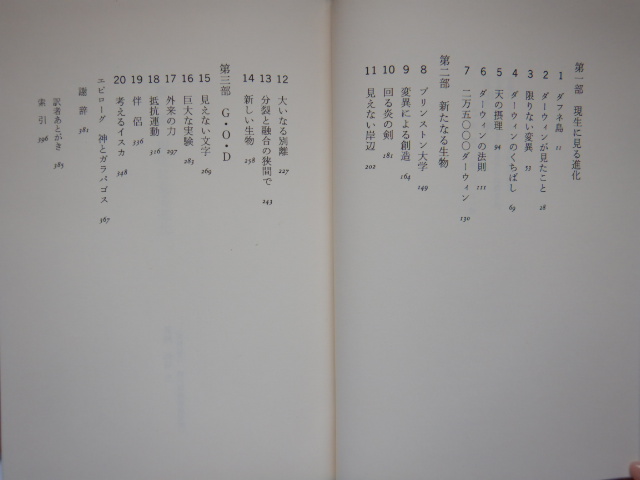 第一部 現生に見る進化
1 ダフネ島 11
2 ダーウィンが見たこと 28
3 限りない変異 53
4 ダーウィンのくちばし 69
5 天の摂理 94
6 ダーウィンの法則 111
7 二万五〇〇〇ダーウィン 130
第二部 新たなる生物
8 プリンストン大学 149
9 変異による創造 164
10 回る炎の剣 181
11 見えない岸辺 202
12 大いなる別離 227
13 分裂と融合の狭間で 243
14 新しい生物 258
第三部 G・O・D
15 見えない文字 269
16 巨大な実験 283
17 外来の力 297
18 抵抗運動 316
19 伴侶 336
20 考えるイスカ 348
エピローグ 神とガラパゴス 367
謝辞 381
訳者あとがき 385
索引 396